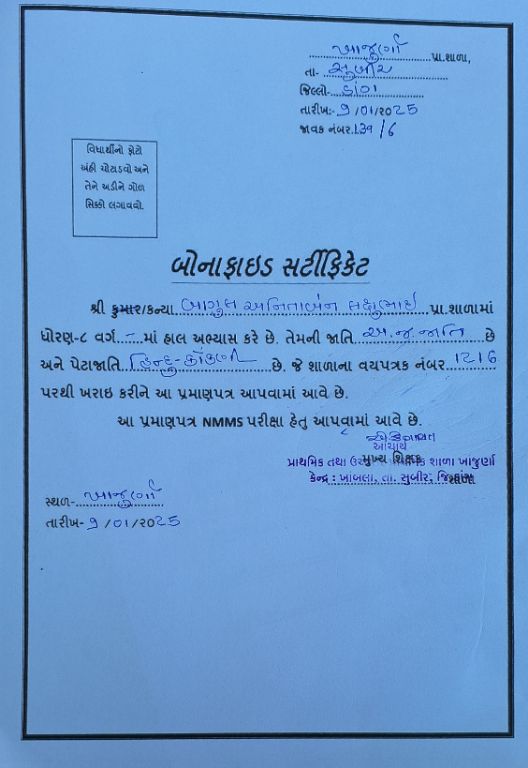 ખાજુર્ણા પ્રા.શાળા,
તા- સુબીર
જિલ્લો- ડાંગ
તારીખ:- 9/01/2025
જાવક નંબર.139/6
વિધાર્થીનો ફોટો
અંહી ચોટાડવો અને
તેને અડીને ગોળ
સિક્કો લગાવવો.
બોનાફાઇડ સર્ટીફિકેટ
શ્રી કુમાર/કન્યા બાગુલ અનિતાબેન પ્રા.શાળામાં
ધોરણ-૮ વર્ગ - માં હાલ અભ્યાસ કરે છે. તેમની જાતિ અ.જ.જાતિ છે
અને પેટાજાતિ હિન્દુ-કોંકણી છે. જે શાળાના વયપત્રક નંબર 1216
પરથી ખરાઇ કરીને આ પ્રમાણપત્ર આપવામાં આવે છે.
આ પ્રમાણપત્ર NMMS પરીક્ષા હેતુ આપવામાં આવે છે.
આચાર્ય
મુખ્ય શિક્ષક
પ્રાથમિક તથા શાળા ખાજુર્ણા
કેન્દ્ર : ખાંબલા, તા. સુબીર, જિ.ડાંગ
સ્થળ- ખાજુર્ણા
તારીખ- 9/01/2025